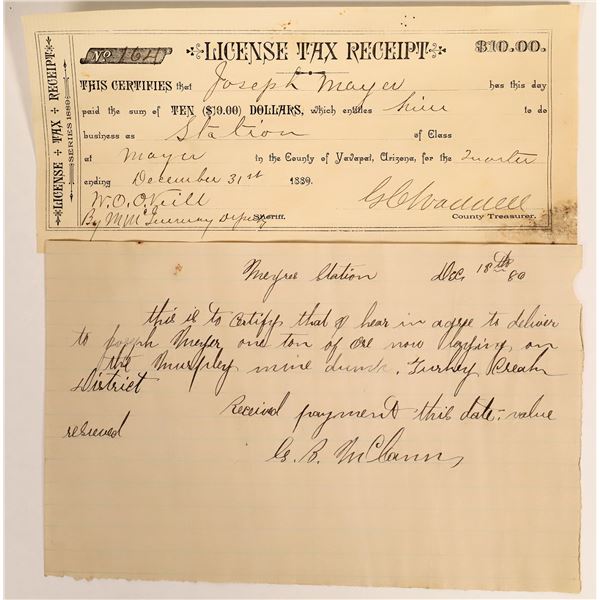 LICENSE TAX RECEIPT
SERIES 1889.
No 164 LICENSE TAX RECEIPT $10.00.
THIS CERTIFIES that Joseph Mayer has this day
paid the sum of TEN ($10.00) DOLLARS, which entitles him to do
business as Station of Class
at Mayer in the County of Yavapai, Arizona, for the Quarter
ending December 31st 1889.
W. O. O'Neill G C Waddell
By Deputy Sheriff. County Treasurer.
Meyres Station Dec, 18th 80
this is to certify that I hear in agre to deliver
to joseph Meyer one ton of Ore now laying on
the Murphey mine dump. Turkey Creak
District
received payment this date - value
recieved
G. R. McCann